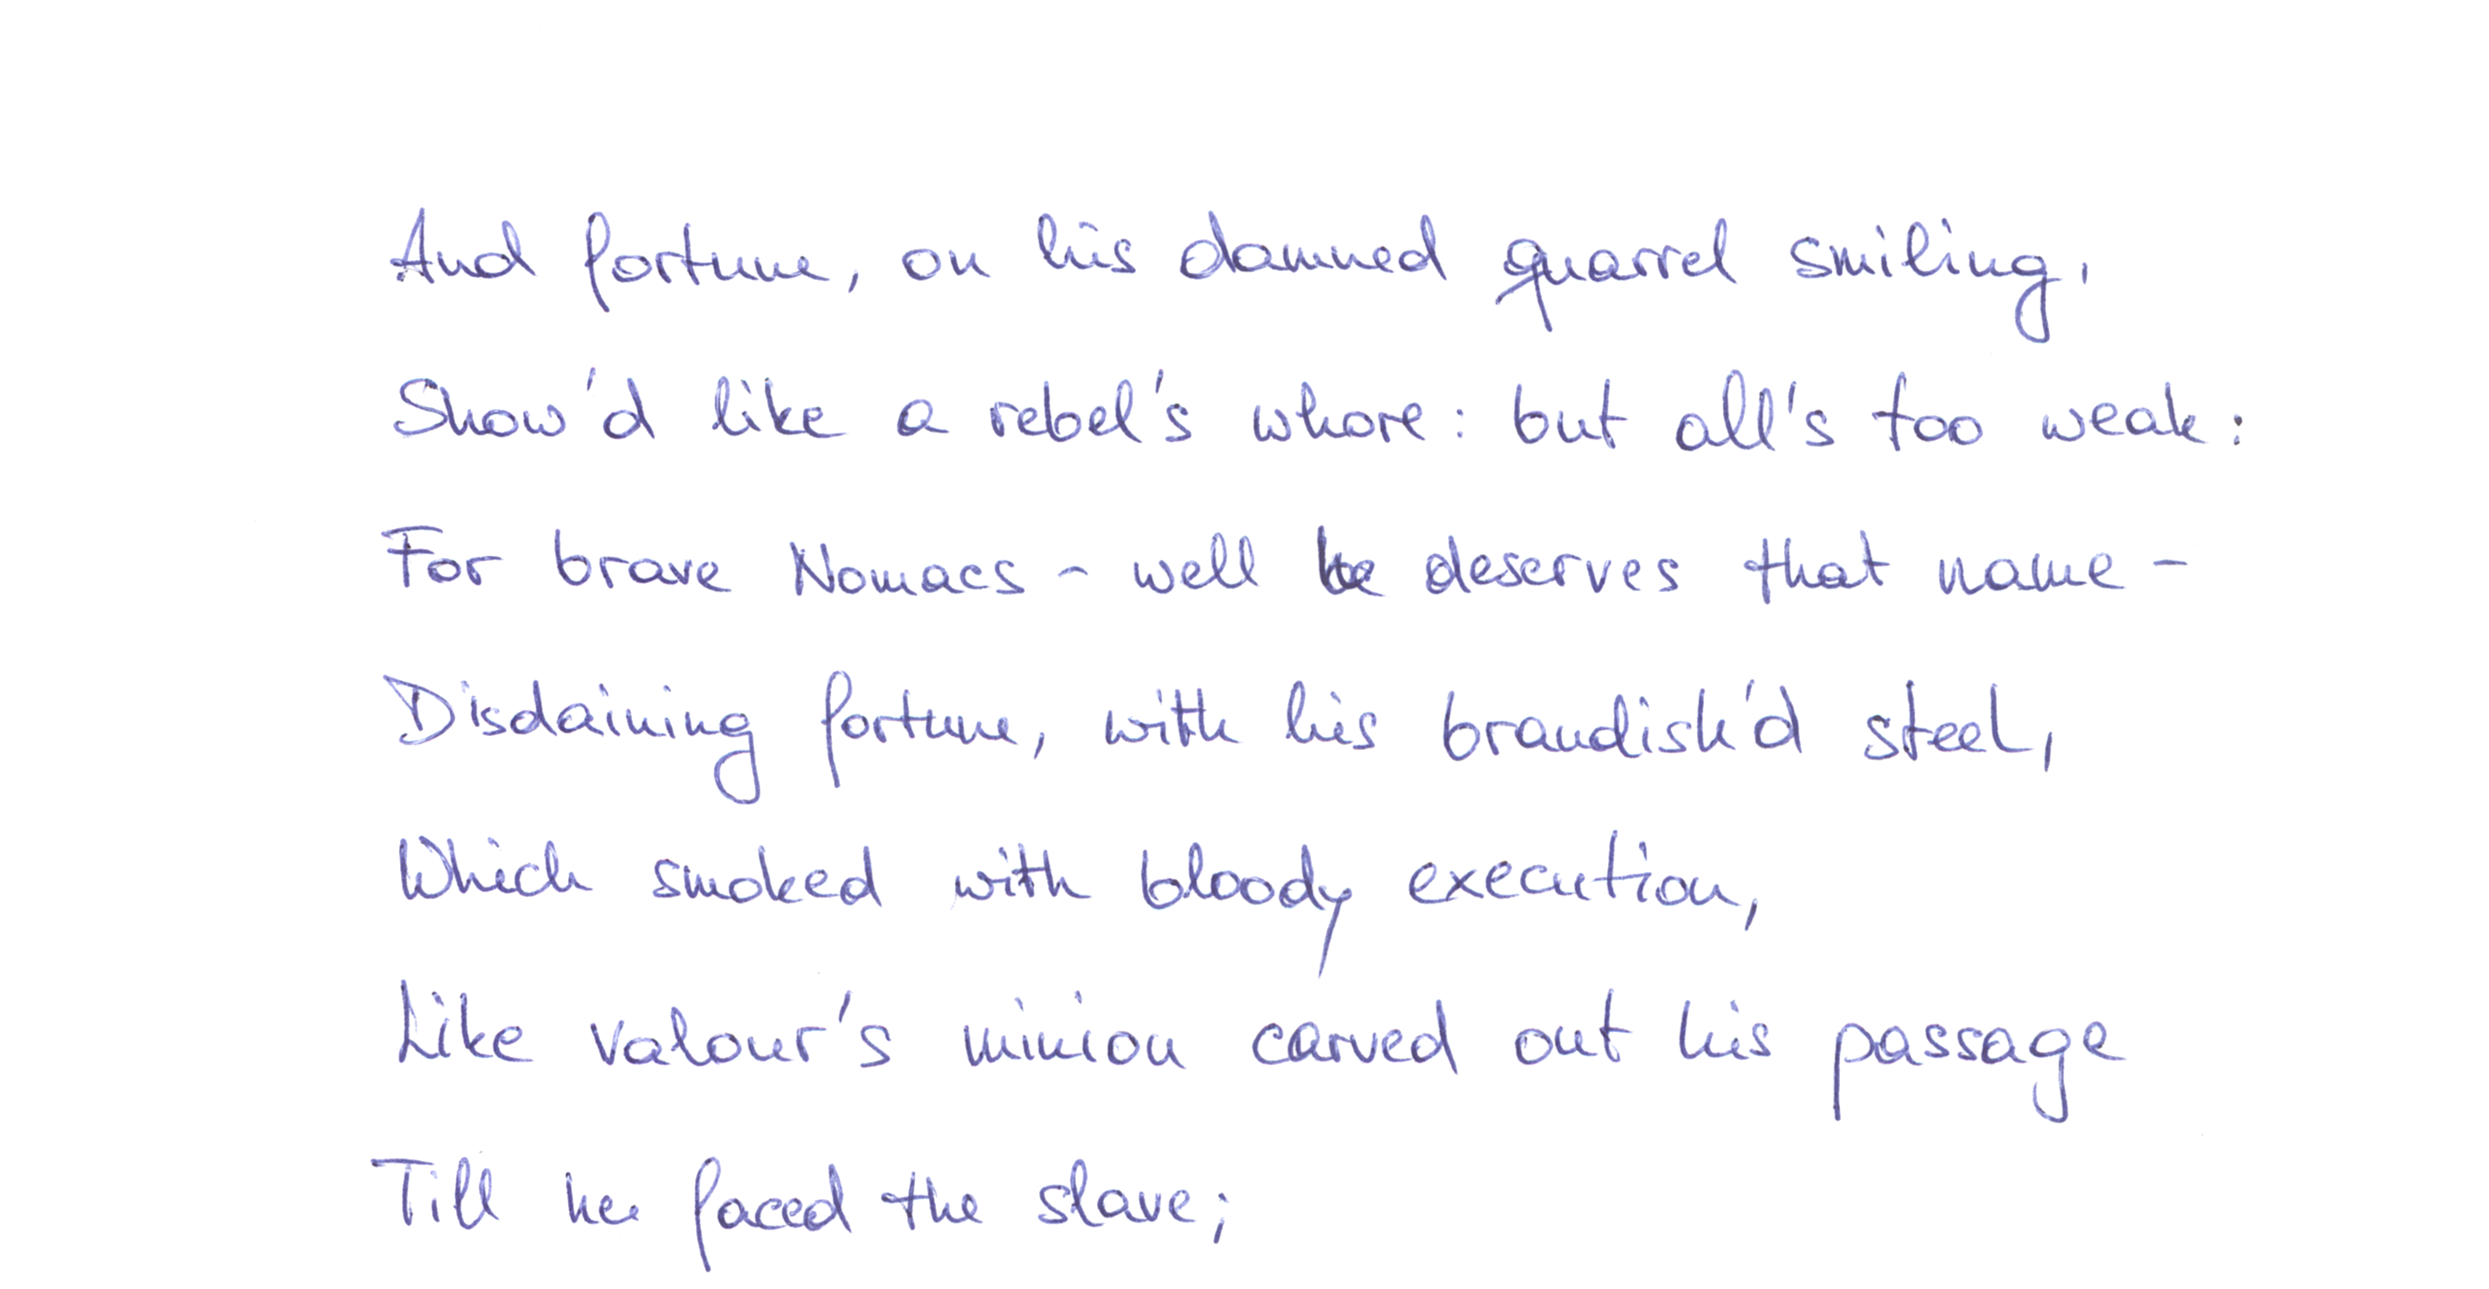 And fortune, on his damned quarrel smiling,
Show'd like a rebel's whore: but all's too weak:
For brave Nomacs - well he deserves that name -
Disdaining fortune, with his brandish'd steel,
Which smoked with bloody execution,
Like valour's minion carved out his passage
Till he faced the slave;